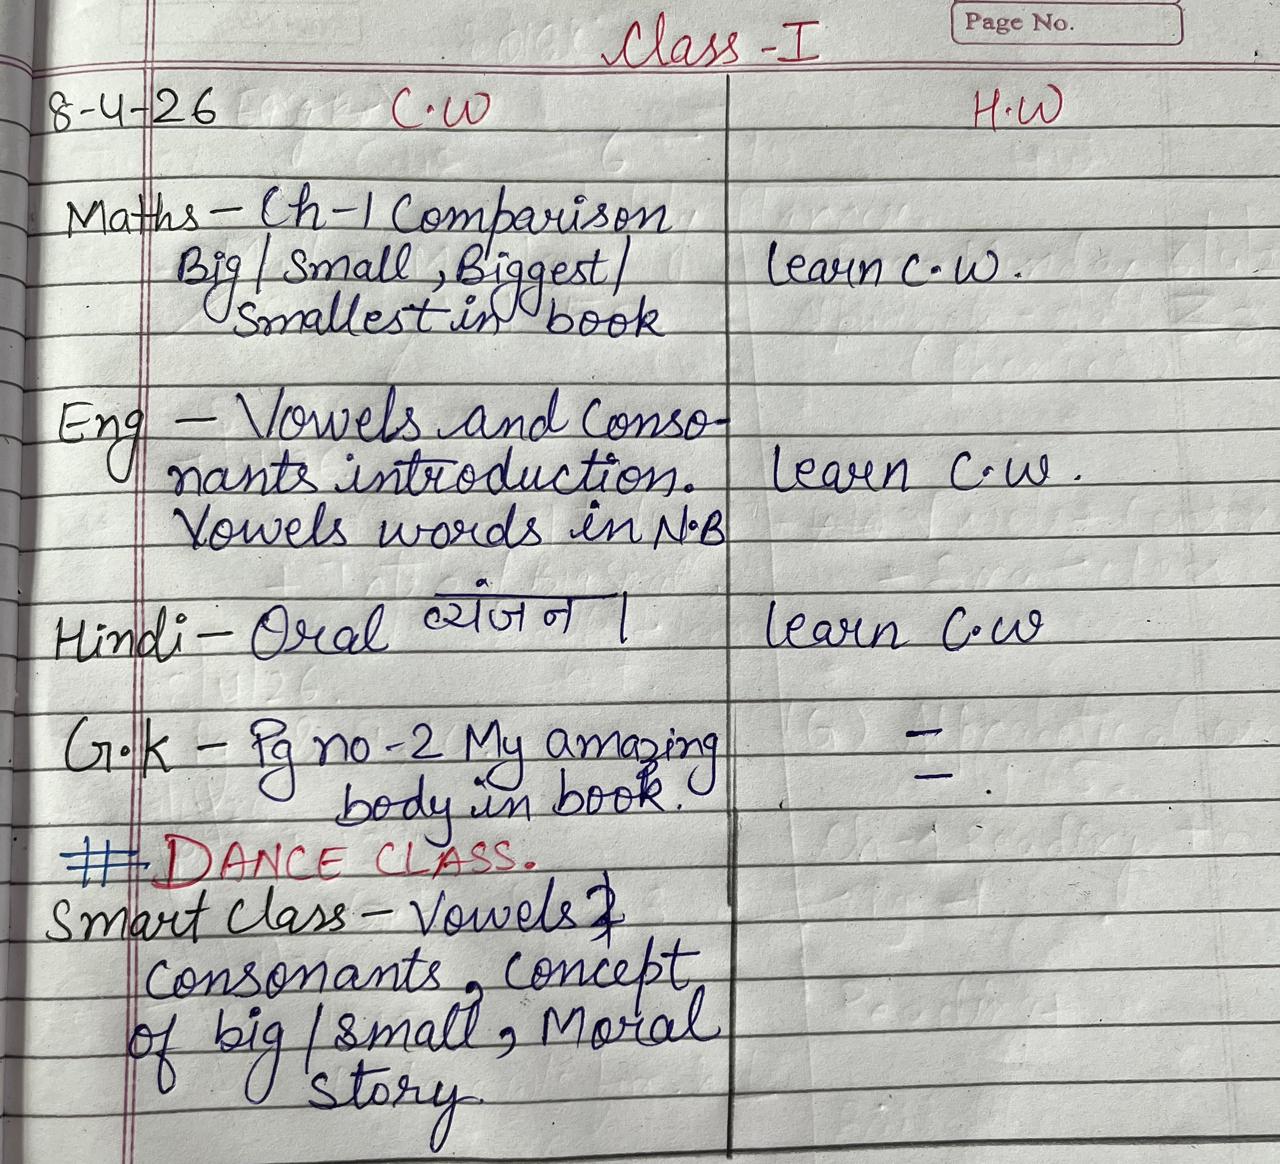 Page No.
Class - I
8-4-26 C.W H.W
Maths - Ch-1 Comparison
Big / Small , Biggest / learn C.W.
Smallest in book
Eng - Vowels and Conso-
nants introduction. learn C.W.
Vowels words in N.B
Hindi - Oral व्यंजन । learn C.W
G.K - Pg no - 2 My amazing
body in book.
# DANCE CLASS.
Smart Class - Vowels &
consonants, concept
of big / small, Moral
story